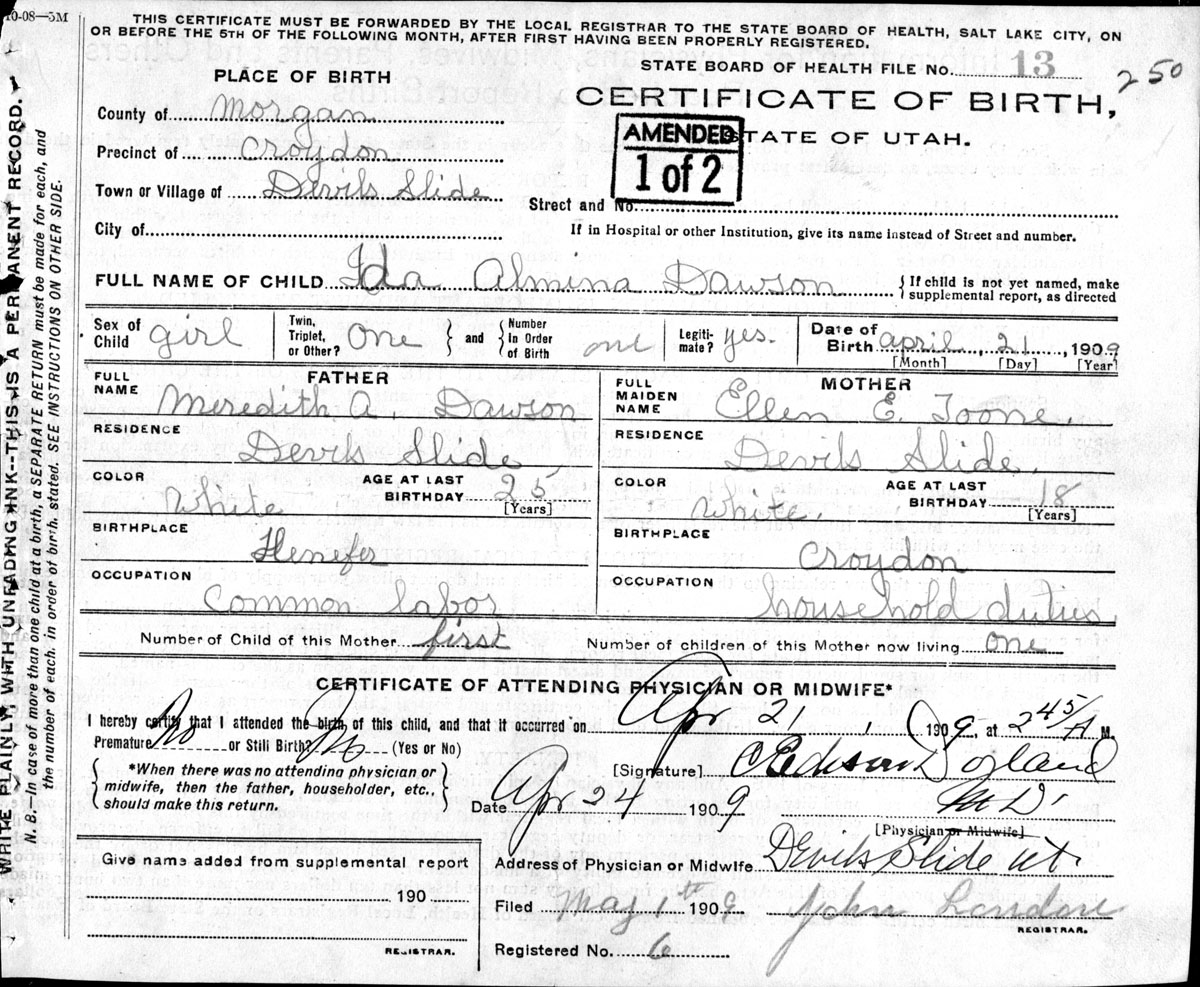 10-08—5M
THIS CERTIFICATE MUST BE FORWARDED BY THE LOCAL REGISTRAR TO THE STATE BOARD OF HEALTH, SALT LAKE CITY, ON
OR BEFORE THE 5TH OF THE FOLLOWING MONTH, AFTER FIRST HAVING BEEN PROPERLY REGISTERED.
STATE BOARD OF HEALTH FILE No. 13
250
PLACE OF BIRTH
CERTIFICATE OF BIRTH,
STATE OF UTAH.
AMENDED
1 of 2
County of Morgan
Precinct of Croydon
Town or Village of Devils Slide
Street and No.
City of
If in Hospital or other Institution, give its name instead of Street and number.
FULL NAME OF CHILD Ida Almina Dawson
{If child is not yet named, make
supplemental report, as directed
Sex of Child girl
Twin, Triplet, or Other? One
and
Number In Order of Birth one
Legiti-mate? yes.
Date of Birth april 21, 1909
[Month] [Day] [Year]
FATHER
FULL NAME Meredith A. Dawson
RESIDENCE
Devils Slide,
COLOR White
AGE AT LAST BIRTHDAY 25
[Years]
BIRTHPLACE
Henefer
OCCUPATION
Common labor
MOTHER
FULL MAIDEN NAME Ellen E. Toone.
RESIDENCE
Devils Slide.
COLOR White.
AGE AT LAST BIRTHDAY 18
[Years]
BIRTHPLACE
Croydon
OCCUPATION
household duties
Number of Child of this Mother first
Number of children of this Mother now living one
CERTIFICATE OF ATTENDING PHYSICIAN OR MIDWIFE*
I hereby certify that I attended the birth of this child, and that it occurred on Apr 21, 1909, at 2 45/A M.
Premature No or Still Birth? No (Yes or No)
{*When there was no attending physician or
midwife, then the father, householder, etc.,
should make this return.}
[Signature]
M D.
Date Apr 24 1909
[Physician or Midwife]
Address of Physician or Midwife Devils Slide Ut.
Give name added from supplemental report
190
REGISTRAR.
Filed May 1th 1909
John
REGISTRAR.
Registered No. 6
WRITE PLAINLY WITH UNFADING INK--THIS IS A PERMANENT RECORD.
N. B.—In case of more than one child at a birth, a SEPARATE RETURN must be made for each, and
the number of each, in order of birth, stated. SEE INSTRUCTIONS ON OTHER SIDE.